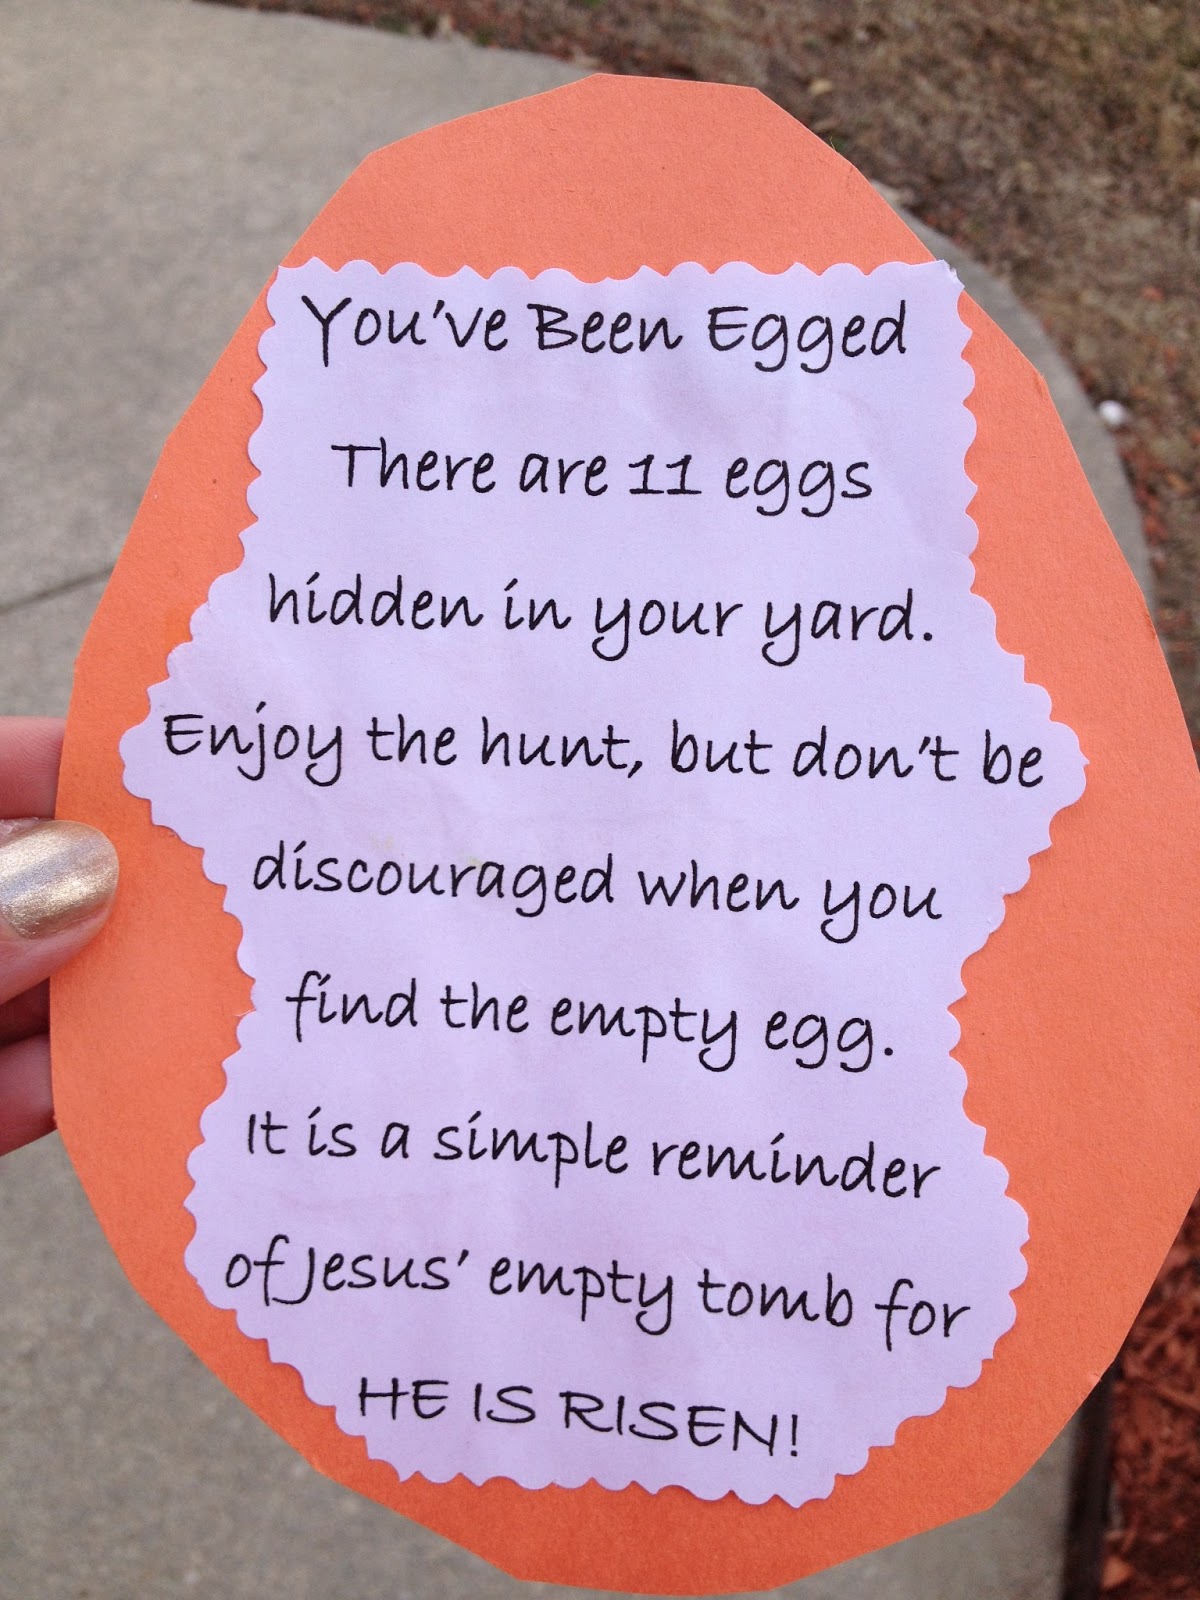 You've Been Egged
There are 11 eggs
hidden in your yard.
Enjoy the hunt, but don't be
discouraged when you
find the empty egg.
It is a simple reminder
of Jesus' empty tomb for
HE IS RISEN!